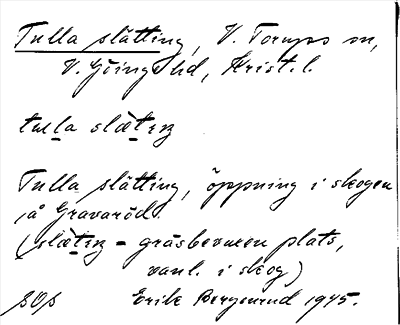 Tulla slätting, V. Torups sn,
V. Göinge hd, Krist. l.
tulla slætıŋ
Tulla slätting, öppning i skogen
å Gravaröd.
(slætıŋ = gräsbevuxen plats,
vanl. i skog)
SOS Erik Bergenrud 1945.